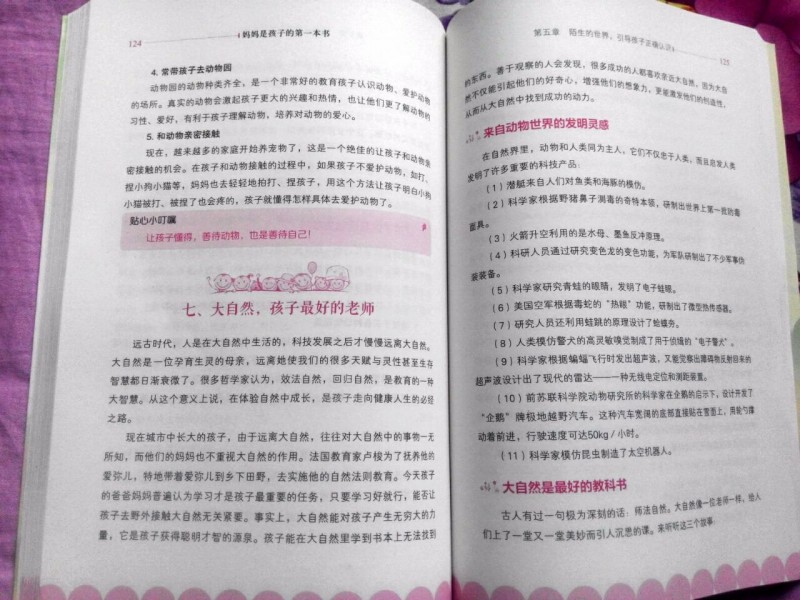 124
妈妈是孩子的第一本书
4. 常带孩子去动物园
动物园的动物种类齐全，是一个非常好的教育孩子认识动物，爱护动物
的场所。真实的动物会激起孩子更大的兴趣和热情，也让他们更了解动物的
习性、爱好，有利于孩子理解动物，培养对动物的爱心。
5. 和动物亲密接触
现在，越来越多的家庭开始养宠物了，这是一个绝佳的让孩子和动物亲
密接触的机会。在孩子和动物接触的过程中，如果孩子不爱护动物，如打、
捏小狗小猫等，妈妈也去轻轻地拍打、捏孩子，用这个方法让孩子明白小狗
小猫被打、被捏了也会疼的，孩子就懂得怎样具体去爱护动物了。
贴心小叮嘱
让孩子懂得，善待动物，也是善待自己！
七、大自然，孩子最好的老师
远古时代，人是在大自然中生活的，科技发展之后才慢慢远离大自然。
大自然是一位孕育生灵的母亲，远离她使我们的很多天赋与灵性甚至生存
智慧都日渐衰微了。很多哲学家认为，效法自然，回归自然，是教育的一种
大智慧。从这个意义上说，在体验自然中成长，是孩子走向健康人生的必经
之路。
现在城市中长大的孩子，由于远离大自然，往往对大自然中的事物一无
所知，而他们的妈妈也不重视大自然的作用。法国教育家卢梭为了抚养他的
爱弥儿，特地带着爱弥儿到乡下田野，去实施他的自然法则教育。今天孩子
的爸爸妈妈普遍认为学习才是孩子最重要的任务，只要学习好就行，能否让
孩子去野外接触大自然无关紧要。事实上，大自然能对孩子产生无穷大的力
量，它是孩子获得聪明才智的源泉。孩子能在大自然里学到书本上无法找到
第五章 陌生的世界，引导孩子正确认识
125
的东西。善于观察的人会发现，很多成功的人都喜欢亲近大自然，因为大自
然不仅能引起他们的好奇心，增强他们的想象力，更能激发他们的创造性，
从而从大自然中找到成功的动力。
来自动物世界的发明灵感
在自然界里，动物和人类同为主人，它们不仅忠于人类，而且启发人类
发明了许多重要的科技产品：
（1）潜艇来自人们对鱼类和海豚的模仿。
（2）科学家根据野猪鼻子测毒的奇特本领，研制出世界上第一批防毒
面具。
（3）火箭升空利用的是水母、墨鱼反冲原理。
（4）科研人员通过研究变色龙的变色功能，为军队研制出了不少军事伪
装装备。
（5）科学家研究青蛙的眼睛，发明了电子蛙眼。
（6）美国空军根据毒蛇的“热眼”功能，研制出了微型热传感器。
（7）研究人员还利用蛙跳的原理设计了蛤蟆夯。
（8）人类模仿警犬的高灵敏嗅觉制成了用于侦缉的“电子警犬”。
（9）科学家根据蝙蝠飞行时发出超声波，又能觉察出障碍物反射回来的
超声波设计出了现代的雷达——一种无线电定位和测距装置。
（10）前苏联科学院动物研究所的科学家在企鹅的启示下，设计开发了
“企鹅”牌极地越野汽车。这种汽车宽阔的底部直接贴在雪面上，用轮勺撑
动着前进，行驶速度可达50kg／小时。
（11）科学家模仿昆虫制造了太空机器人。
大自然是最好的教科书
古人有过一句极为深刻的话：师法自然。大自然像一位老师一样，给人
们上了一堂又一堂美妙而引人沉思的课。来听听这三个故事：